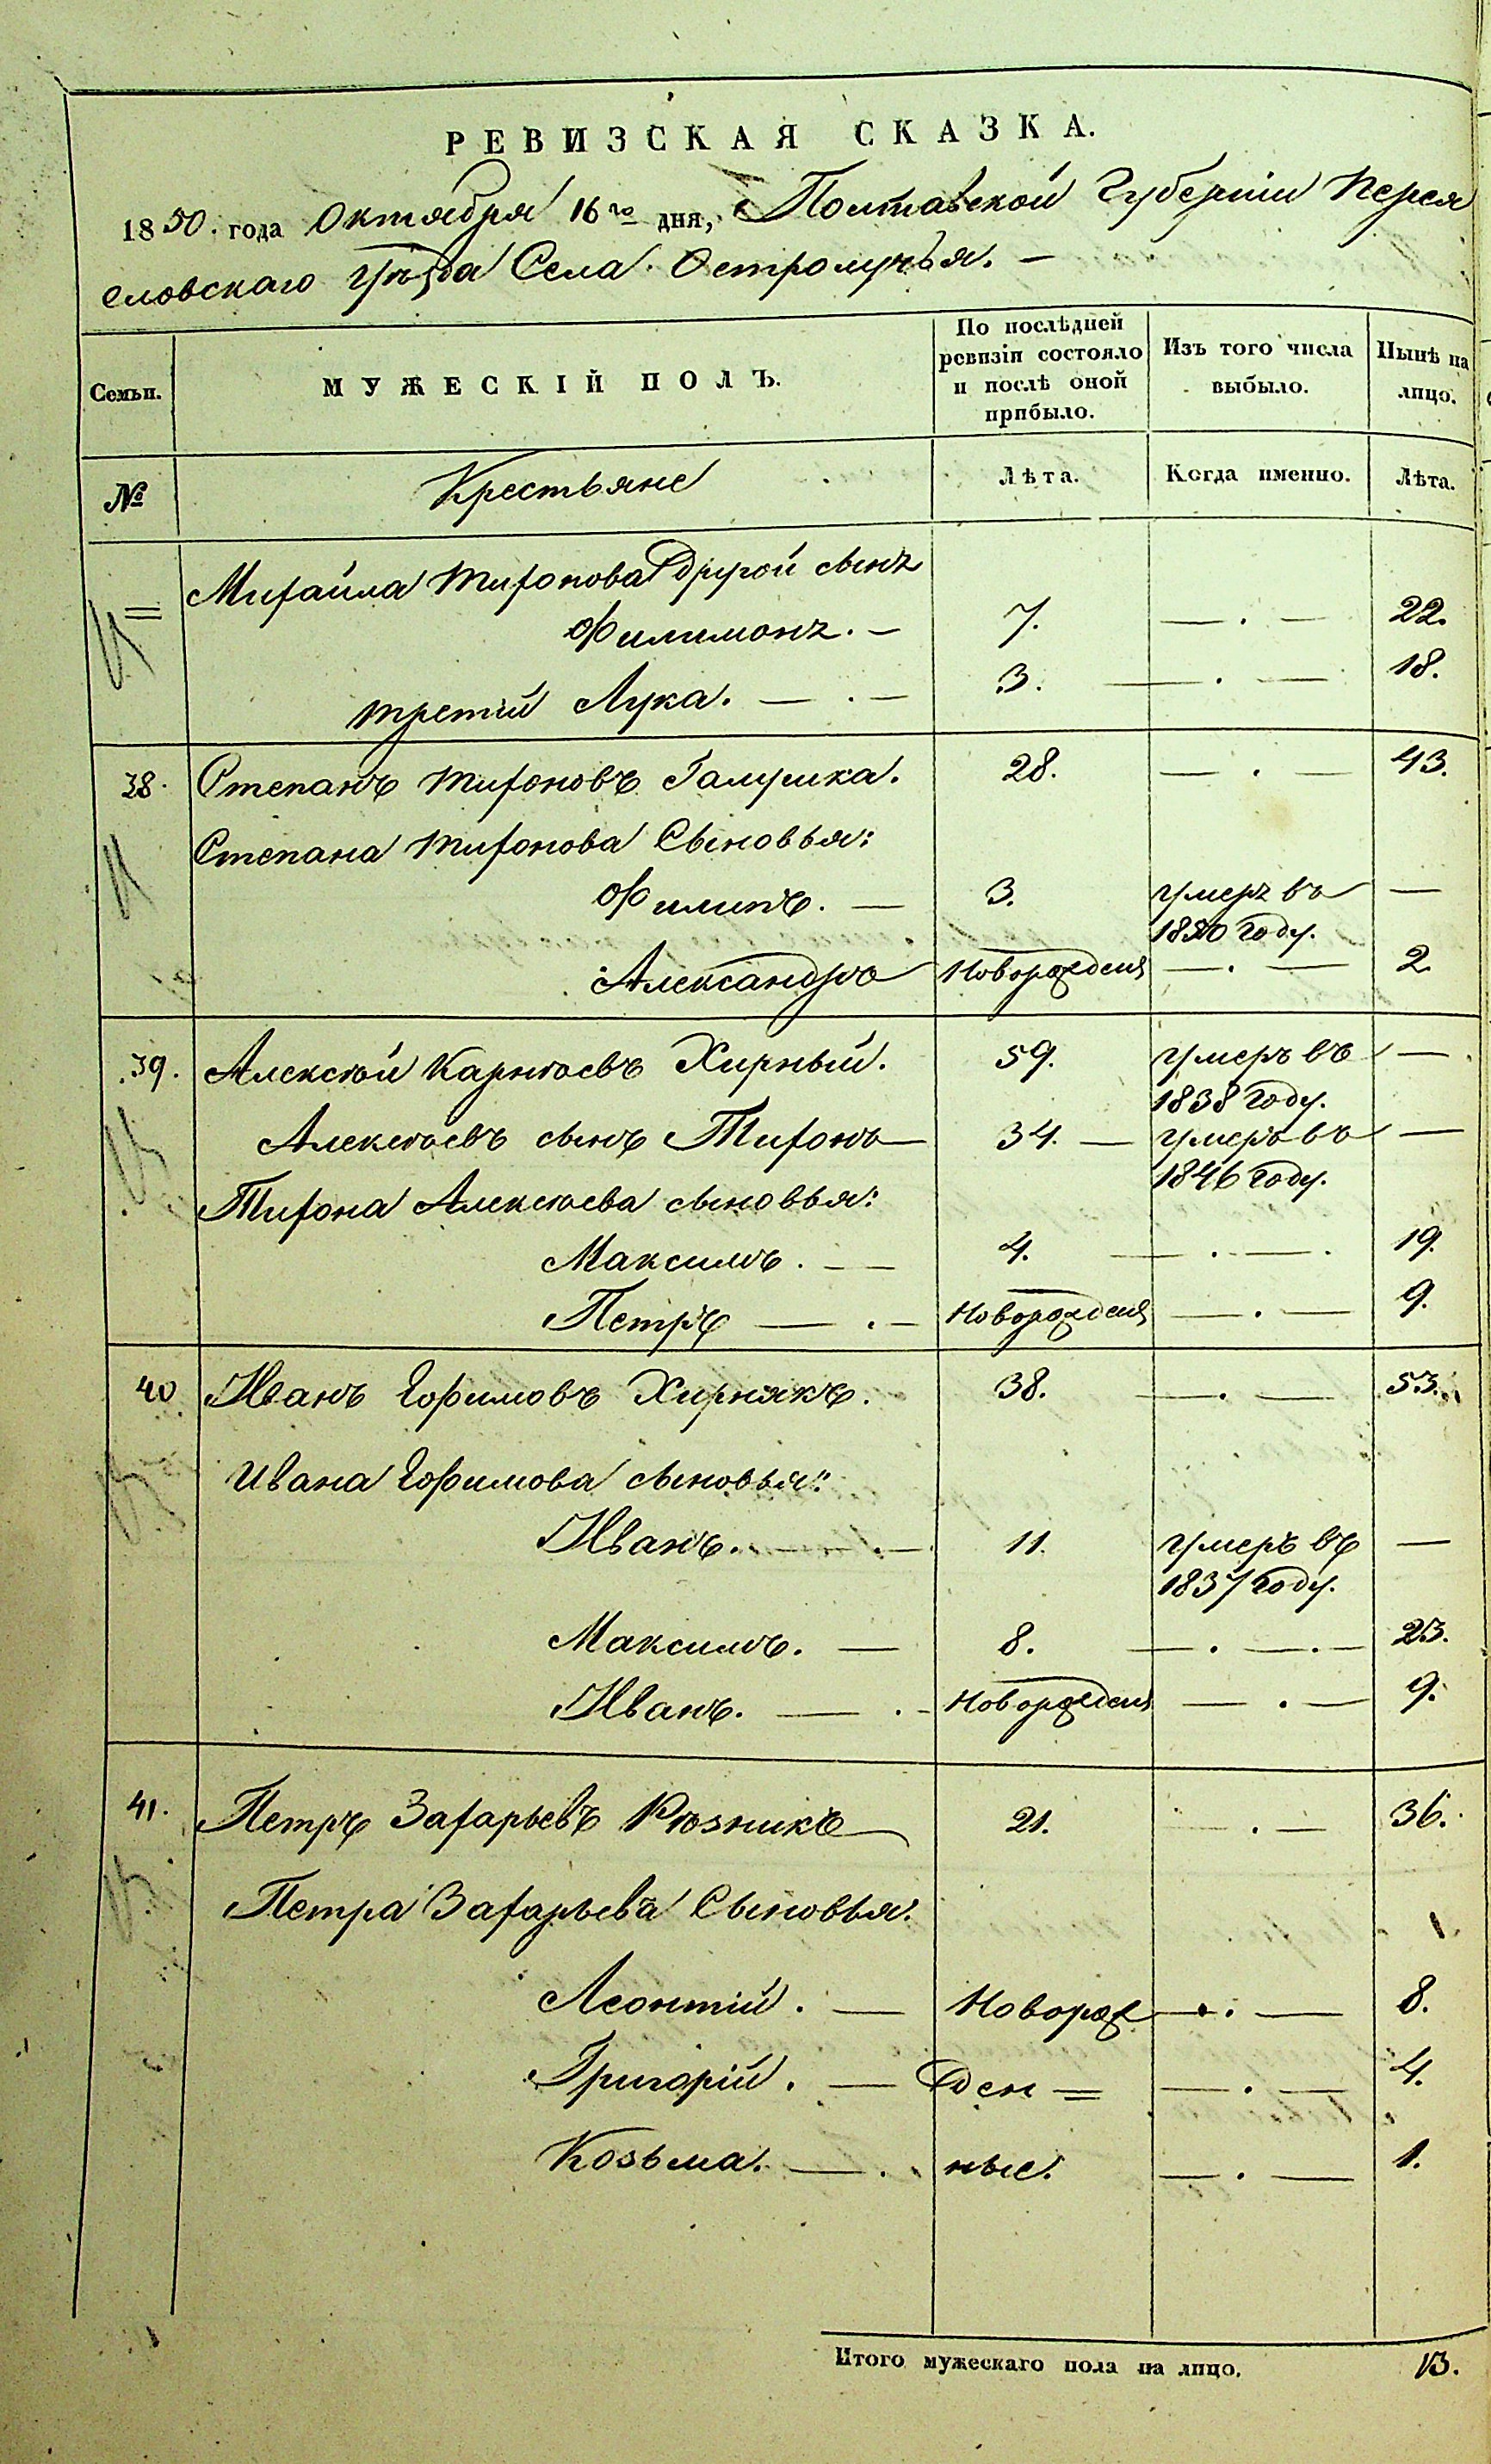 РЕВИЗСКАЯ СКАЗКА.
1850. года Октября 16го дня, Полтавской Губерніи Перея
словскаго Уѣзда Села Остролучья. —
Семьи. МУЖЕСКІЙ ПОЛЪ. По послѣдней ревизіи состояло и послѣ оной прибыло. Изъ того числа выбыло. Нынѣ на лицо.
№ Крестьяне Лѣта. Когда именно. Лѣта.
Михайла Тихонова другой сынъ
Филимонъ. — 7. — . — 22.
третій Лука. — . — 3. — . — 18.
38. Степанъ Тихоновъ Галушка. 28. — . — 43.
Степана Тихонова Сыновья:
Филипъ. — 3. умеръ въ —
1850 году.
Александръ Новорожденъ — . — 2.
39. Алексѣй Карнѣевъ Хирный. 59. умеръ въ —
1838 году.
Алексѣевъ сынъ Тихонъ 34. — умеръ въ —
1846 году.
Тихона Алексѣева сыновья:
Максимъ. — 4. — . — . 19.
Петръ — . — Новорожденъ — . — 9.
40 Иванъ Ефимовъ Хирнякъ. 38. — . — 53.
Ивана Ефимова сыновья:
Иванъ. — . — 11. умеръ въ —
1837 году.
Максимъ. — 8. — . — . — 23.
Иванъ. — . — Новорожденъ — . — 9.
41. Петръ Захарьевъ Рѣзникъ 21. — . — 36.
Петра Захарьева Сыновья:
Леонтій. — Новорож — . — 8.
Григорій. — ден = — . — 4.
Козьма. — . ные. — . — 1.
Итого мужескаго пола на лицо. 13.